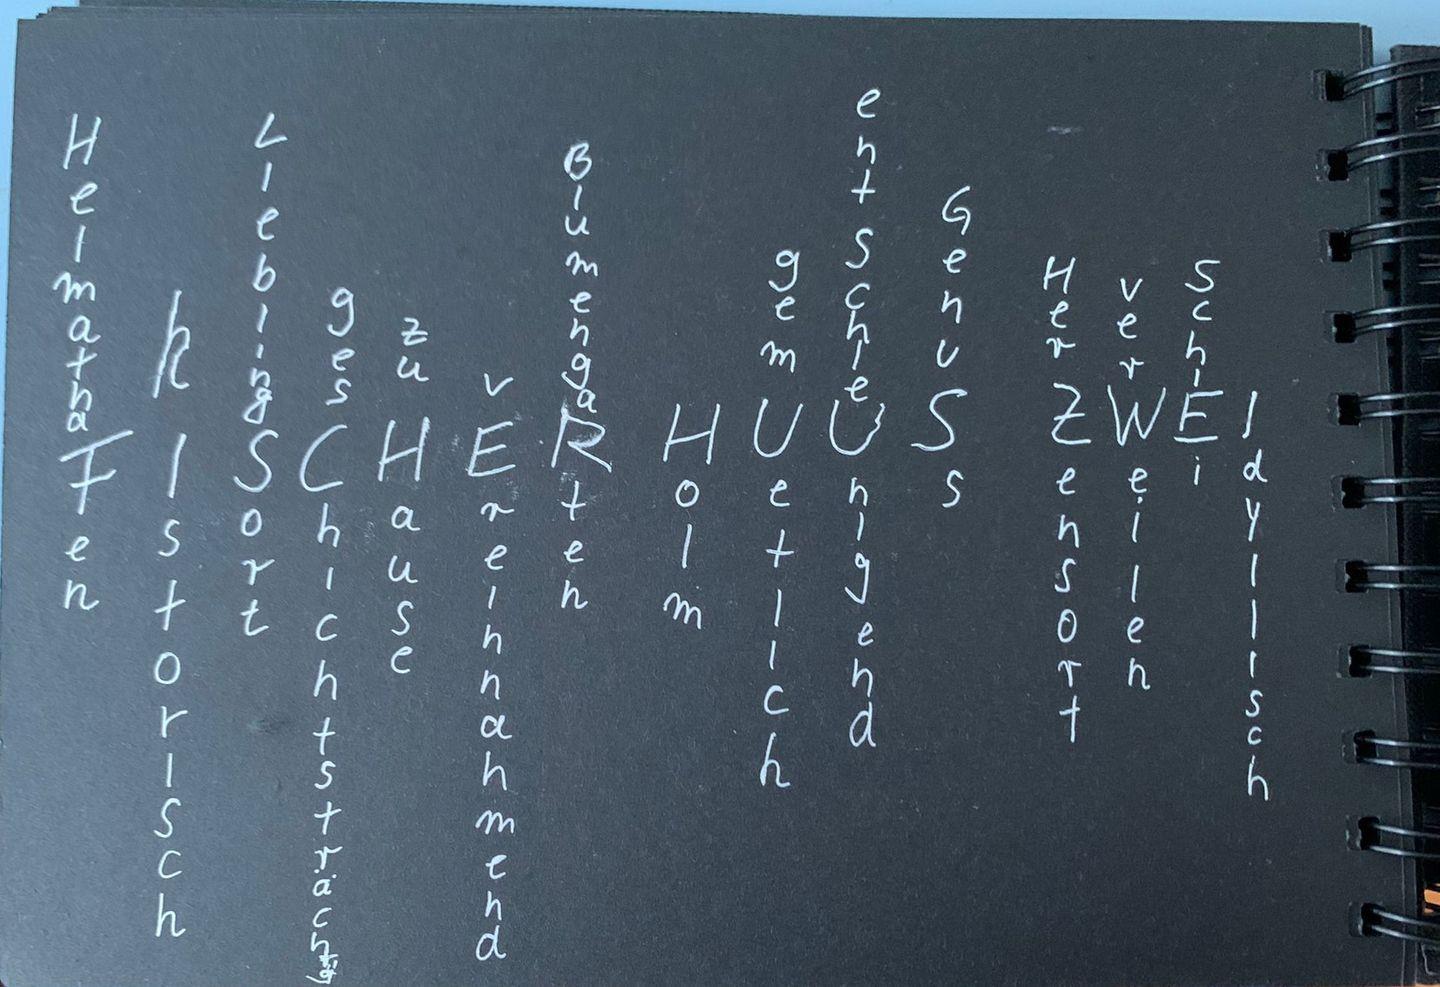 HeimathaFen
hIstorisch
LieblingSort
gesChichtsträchtig
zu Hause
vEreinnahmend
BlumengaRten
Holm
gemUetlich
entschleUnigend
GenuSs
HerZensort
verWeilen
SchlEi
Idyllisch